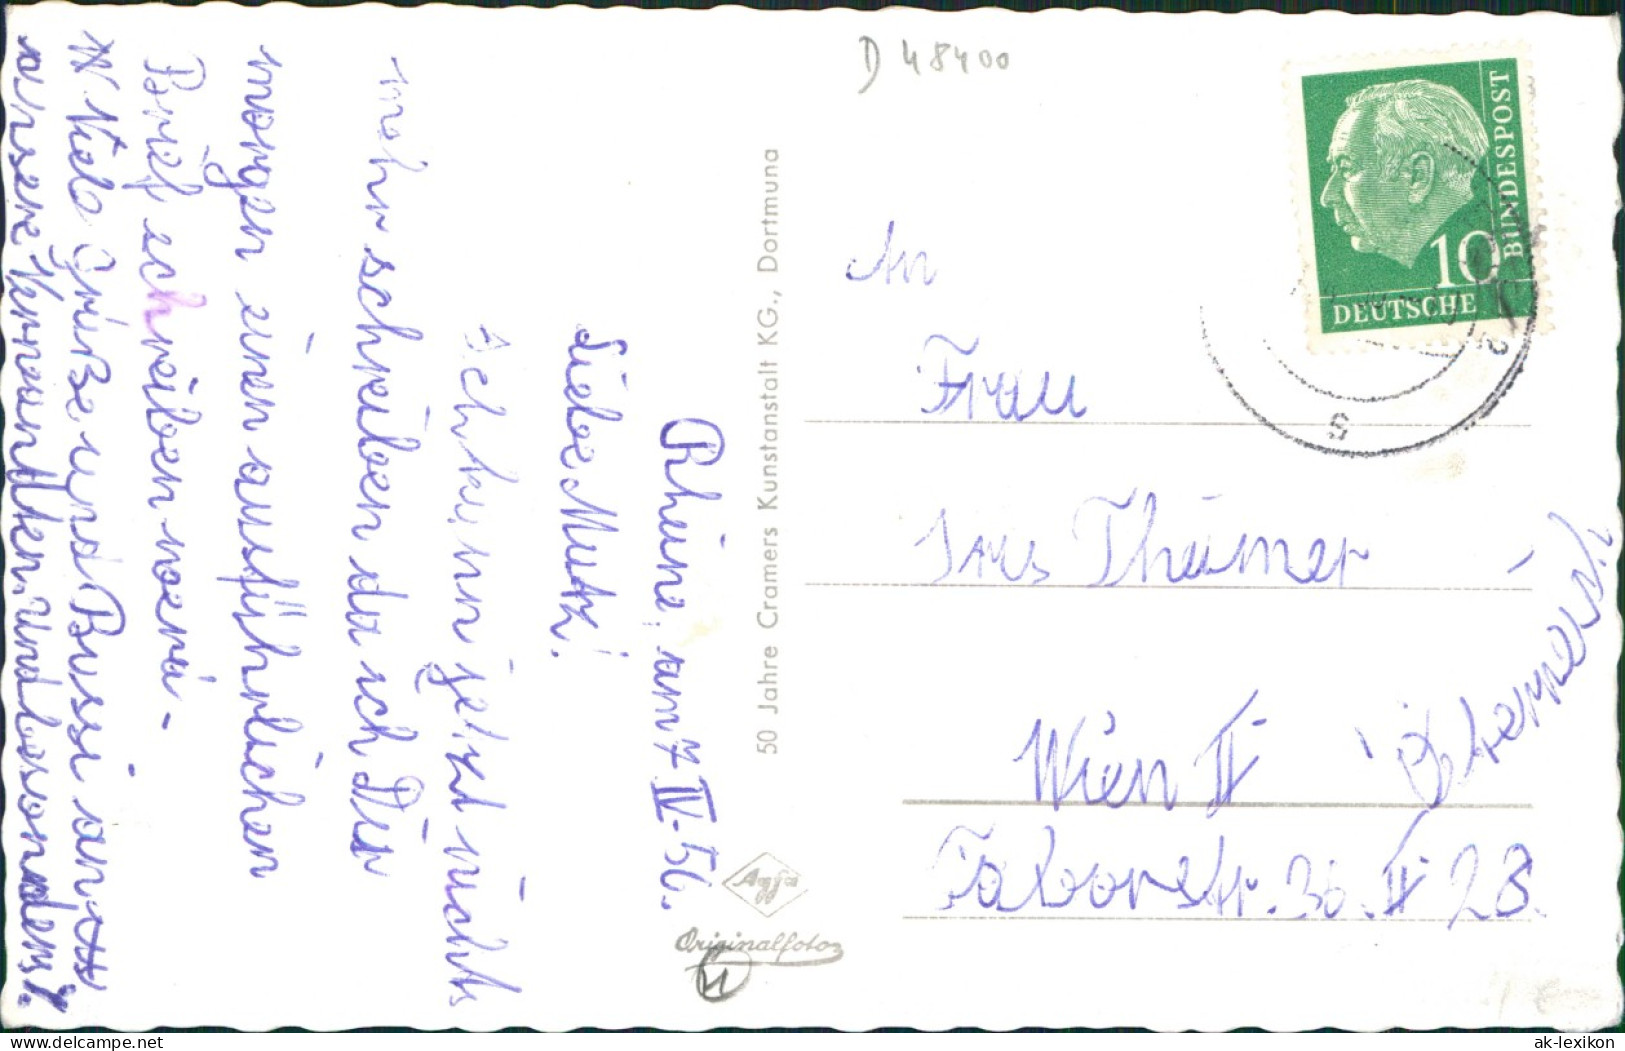 Rheine, am 7 IV-56.
Liebe Mutz!
Ich kann jetzt nicht
mehr schreiben da ich Dir
morgen einen ausführlichen
Brief schreiben werde -
Viele Grüße und Bussi an
unsere Verwandten, und besonders
50 Jahre Cramers Kunstanstalt KG., Dortmund
Agfa
Originalfoto
D 48400
BUNDESPOST
10
DEUTSCHE
An
Frau
Theimer
Wien II
Österreich
Taborstr. 36. II 23
ak-lexikon